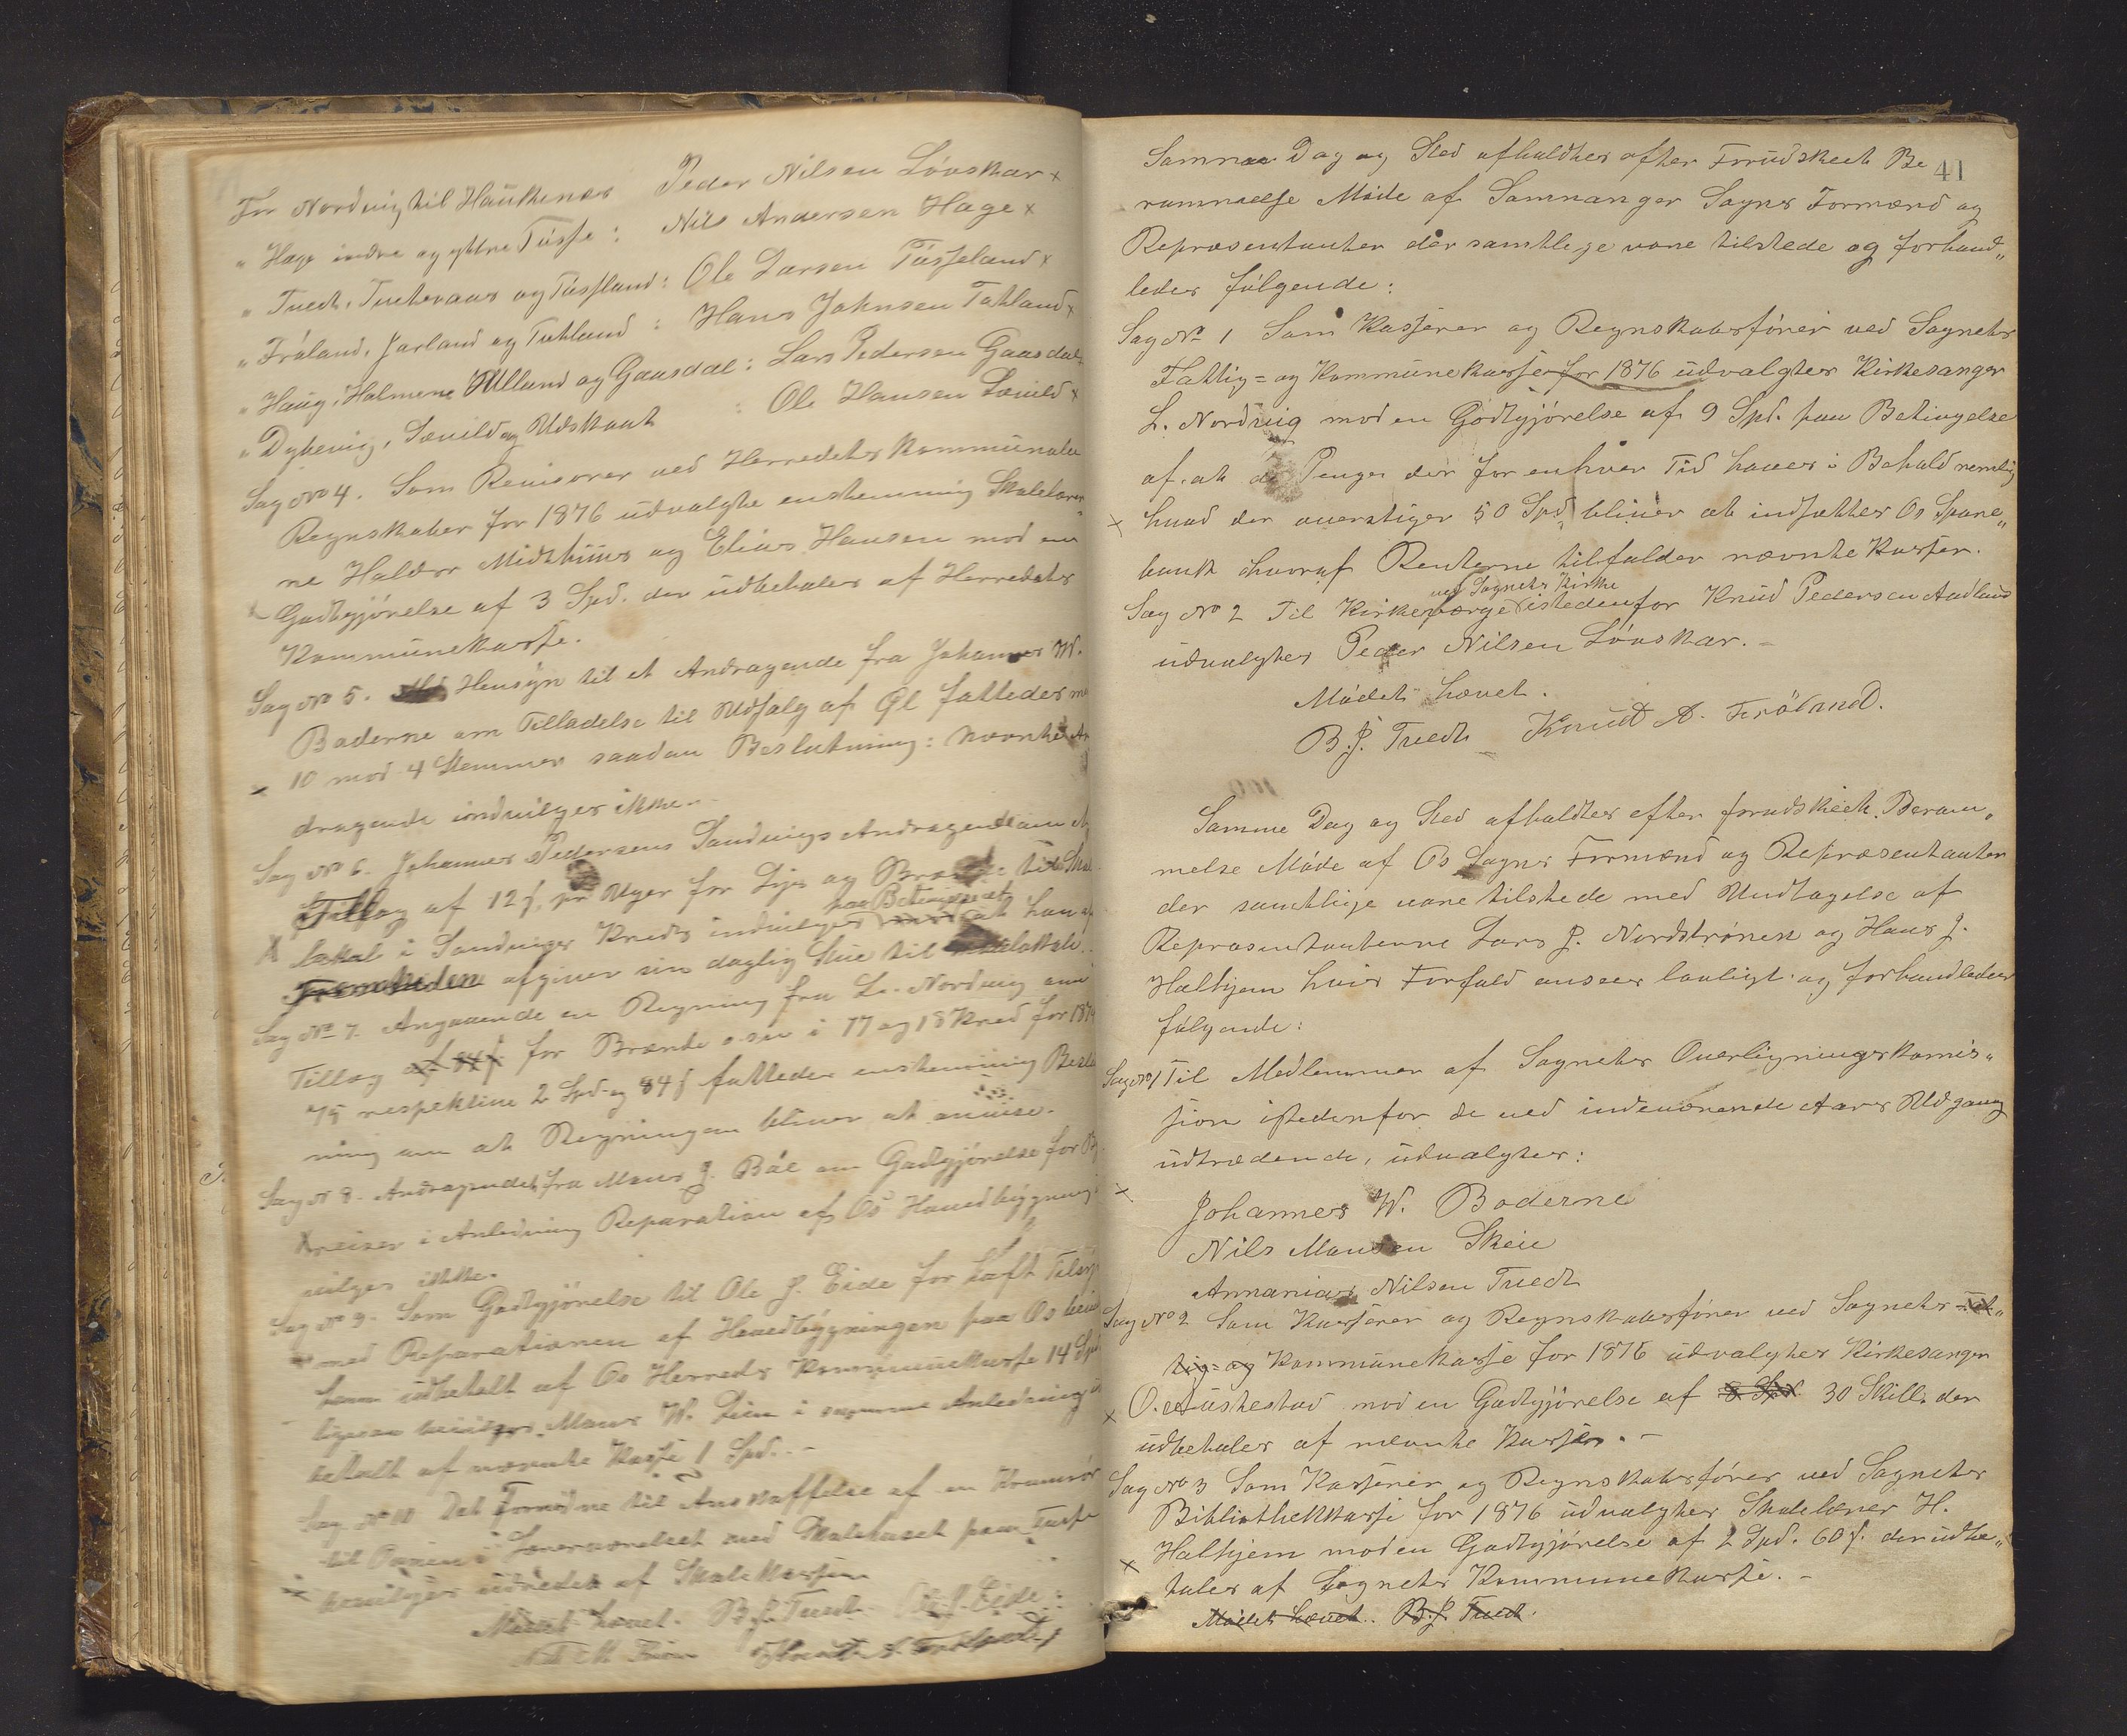 For Nordvig til Haukenes Peder Nilsen Løvskar x
" Hage indre og yttre Tüsse : Nils Andersen Hage x
" Tvedt, Tveteraas og Tüssland : Ole Larsen Tüsseland x
" Fröland, Jarland og Totland : Hans Johnsen Totland x
" Haug, Holmene Ulland og Gaasdal : Lars Pedersen Gaasdal
" Dybevig, Sævild og Udskaat : Ole Hansen Sævild x
Sag No 4. Som Revisorer ved Herredets kommunale
Regnskaber for 1876 udvalgte enstemmig Skolelærer„
ne Haldor Midthüus og Elias Hansen mod en
Godtgjörelse af 3 Spd. der udbetales af Herredets
Kommünekasse.
Sag No 5. Hensyn til et Andragende fra Johannes W.
Boderne om Tilladelse til Udsalg af Øl fattedes me
10 mod 4 Stemmer saadan Beslutning: Nævnte An
dragende indvilges ikke.-
Sag No 6. Johannes Pedersens Sandvigs Andragende om et
Tillæg af 12 ſ. pr Uger for Lys og Brænde til Sko
paa Betingelse at
lokal i Sandviges Kreds indvilges at han af
Fremtiden afgiver sin daglig Stue til
Sag No 7. Angaaende en Regning fra L. Nordvig om
Tillæg af 84 ſ for Brænde o.sv i 17 og 18 Kred for 1874
75 respektive 2 Spd og 84 ſ fattedes enstemmig Beslut
ning om at Regningen bliver at anvise.
Sag N 8. Andragendet fra Mons J. Bål om Godtgjörelse for By
reiser i Anledning Reparation af Os Hovedbygning
vilges ikke.
Sag No 9. Som Godtgjörelse til Ole J. Eide for havt Tilsyn
med Reparationen af Hovedbygningen paa Os bevil
ham udbetalt af Os Herreds Kommünekasse 14 Spd
ligesom bevilges Mons W. Lien i samme Anledning ud
betalt af nævnte Kasse 1 Spd. -
Sag No 10 Det Fornødne til Anskaffelse af en
til Ovnen i Lærerværelset ved Skolehuset paa Tüsse
bevilges udredet af Skolekassen
Mödet hævet. B. J. Tvedt O. J. Eide
Knut A Frøland
41
Samme Dag og Sted afholdtes efter Forudskeet Be
rammelse Möde af Samnanger Sogns Formænd og
Repræsentanter der samtlige vare tilstede og forhand„
ledes fölgende:
Sag No 1 Som Kasserer og Regnskabsförer ved Sognets
Fattig= og Kommünekasse for 1876 üdvalgtes Kirkesanger
L. Nordvig mod en Godtgjörelse af 9 Spd. paa Betingelse
af, at de Penger der for enhver Tid haves i Behold nemlig
x hvad der overstiger 50 Spd, bliver at indsættes Os Spare„
bank hvoraf Renterne tilfalder nævnte Kasser.
ved Sognets Kirke
Sag No 2 Til Kirkeværge istedenfor Knüd Pedersen Aadland
udvalgtes Peder Nilsen Lövskar. -
Mödet hævet.
B. J. Tvedt Knudt A. Fröland.
Samme Dag og Sted afholdtes efter forudskeet Beram„
melse Möde af Os Sogns Formænd og Repræsentanter
der samtlige vare tilstede med Undtagelse af
Repræsentanterne Lars J. Nordströnen og Hans J.
Halhjem hvis Forfald ansees lovligt. og forhandledes
fölgende:
Sag No 1 Til Medlemmer af Sognets Overligningskomis„
sion istedenfor de ved indeværende Aars Udgang
üdtrædende, üdvalgtes:
x Johannes W. Boderne
Nils Monsen Skeie
Annanias Nilsen Tvedt
Sag No 2 Som Kasserer og Regnskabsförer ved Sognets Fat„
tig= og Kommünekasse for 1876 üdvalgtes Kirkesanger
x O. Austestad mod en Godtgjörelse af 8 Spd 30 Skill. der
üdbetales af nævnte Kasser. -
Sag No 3 Som Kasserer og Regnskabsförer ved Sognets
Bibliothekkasse for 1876 üdvalgtes Skolelærer H.
x Halhjem mod en Godtgjörelse af 2 Spd. 60 ſ. der üdbe„
tales af Sognets Kommunekasse. -
Mödet hævet. B. J. Tvedt.